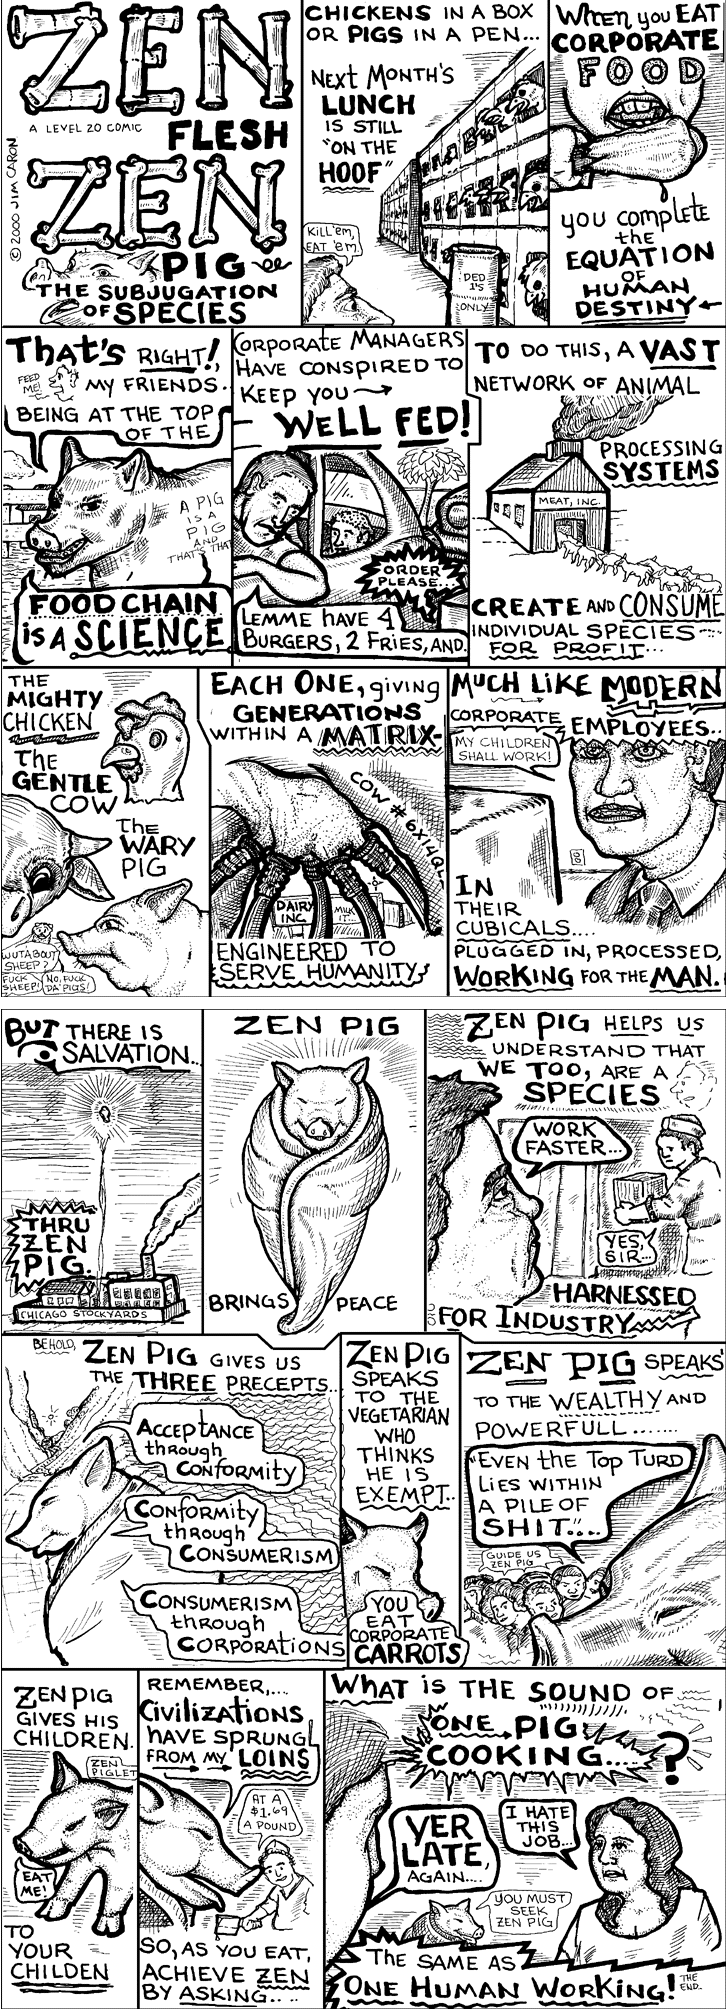 ZEN
A LEVEL 20 COMIC
FLESH
ZEN
© 2000 JIM CARON
PIG
THE SUBJUGATION
OF SPECIES
CHICKENS IN A BOX
OR PIGS IN A PEN...
NEXT MONTH'S
LUNCH
IS STILL
"ON THE
HOOF"
KILL 'EM,
EAT 'EM
DED
1'S
ONLY
When you EAT
CORPORATE
FOOD
you complete
the
EQUATION
OF
HUMAN
DESTINY
THAT'S RIGHT!,
FEED
ME!
MY FRIENDS..
BEING AT THE TOP
OF THE
A PIG
IS A
PIG
AND
THAT'S THAT
FOOD CHAIN
iS A SCIENCE
CORPORATE MANAGERS
HAVE CONSPIRED TO
KEEP YOU
WELL FED!
ORDER
PLEASE...
LEMME HAVE 4
BURGERS, 2 FRIES, AND.
TO DO THIS, A VAST
NETWORK OF ANIMAL
PROCESSING
SYSTEMS
MEAT, INC.
CREATE AND CONSUME
INDIVIDUAL SPECIES
FOR PROFIT...
THE
MIGHTY
CHICKEN
The
GENTLE
COW
The
WARY
PIG
WUTABOUT
SHEEP?
FUCK
SHEEP!
NO, FUCK
DA' PIGS!
EACH ONE, giving
GENERATIONS
WITHIN A MATRIX-
COW # 6X14QL
DAIRY
INC.
MILK
IT..
ENGINEERED TO
SERVE HUMANITY
MUCH LIKE MODERN
CORPORATE EMPLOYEES..
MY CHILDREN
SHALL WORK!
IN
THEIR
CUBICALS....
PLUGGED IN, PROCESSED,
WORKING FOR THE MAN.
BUT THERE IS
SALVATION...
THRU
ZEN
PIG.
CHICAGO STOCKYARDS
ZEN PIG
BRINGS PEACE
ZEN PIG HELPS US
UNDERSTAND THAT
WE TOO, ARE A
SPECIES
WORK
FASTER...
YES,
SIR...
HARNESSED
FOR INDUSTRY
BEHOLD,
ZEN PIG GIVES US
THE THREE PRECEPTS...
ACCEPTANCE
through
CONFORMITY
CONFORMITY
through
CONSUMERISM
CONSUMERISM
through
CORPORATIONS
ZEN PIG
SPEAKS
TO THE
VEGETARIAN
WHO
THINKS
HE IS
EXEMPT..
YOU
EAT
CORPORATE
CARROTS
ZEN PIG SPEAKS
TO THE WEALTHY AND
POWERFULL.......
"EVEN the TOP TURD
LIES WITHIN
A PILE OF
SHIT."....
GUIDE US
ZEN PIG
ZEN PIG
GIVES HIS
CHILDREN.
ZEN
PIGLET
EAT
ME!
TO
YOUR
CHILDEN
REMEMBER,....
CiviLiZATiONS
HAVE SPRUNG
FROM MY LOINS
AT A
$1.69
A POUND
SO, AS YOU EAT,
ACHIEVE ZEN
BY ASKING....
WHAT IS THE SOUND OF
ONE PIG
COOKING....?
YER
LATE,
AGAIN....
I HATE
THIS
JOB...
YOU MUST
SEEK
ZEN PIG
THE SAME AS
ONE HUMAN WORKING!
THE
END..